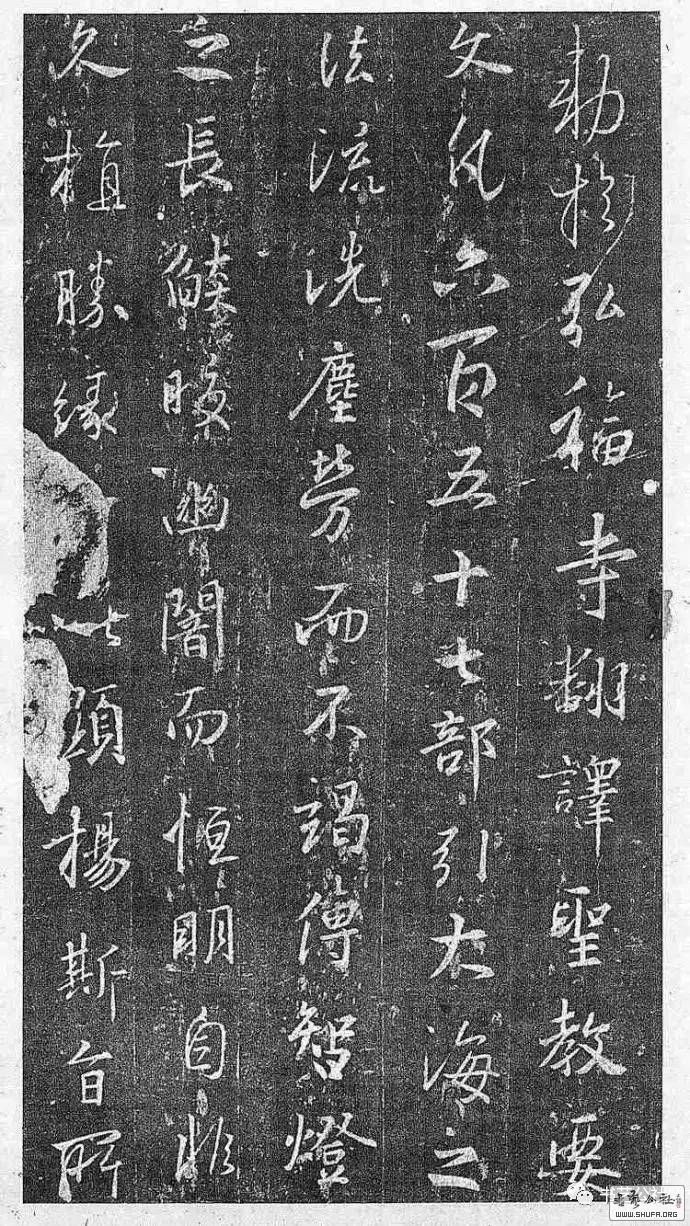 勅於弘福寺翻譯聖教要
文凡六百五十七部引大海之
法流洗塵勞而不竭傳智燈
之長焰皎幽闇而恒明自非
久植勝緣何以顯揚斯旨所
WWW.SHUFA.ORG